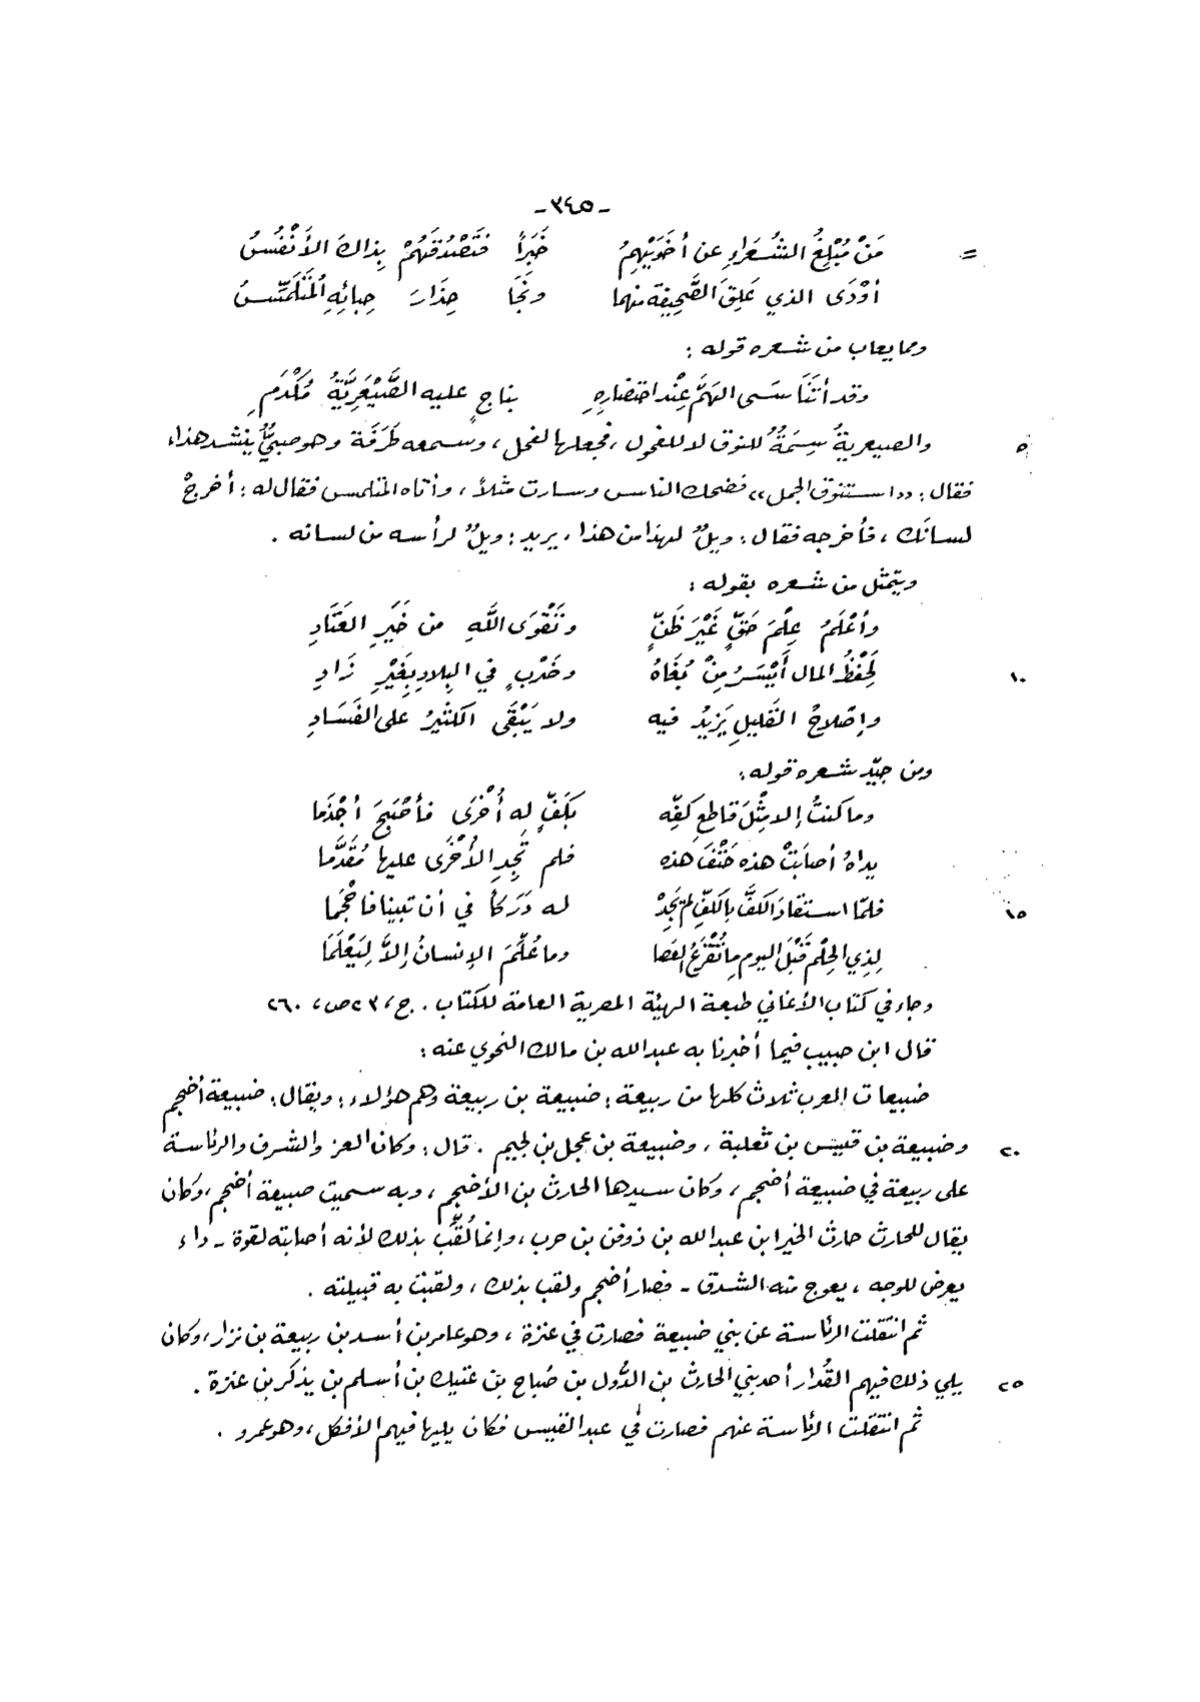 -٣٤٥-
= مَنْ مُبْلِغُ الشُعَراءِ عن أخَوَيْهِمُ خَبَراً فتَصْدُقَهُمْ بِذاكَ الأنْفُسُ
أوْدَى الذي عَلِقَ الصَّحِيفة منهما ونَجَا حِذَارَ حِبائِهِ المُتَلَمِّسُ
ومما يعاب من شعره قوله :
وقد أتَنَاسَى الهَمَّ عِنْد احتضارِهِ بناجٍ عليه الصَّيْعَرِيَّةُ مُكْدَمِ
٥ والصيعريةُ سِمَةٌ للنوق لا للفحول ، فجعلها لفحل ، وسمعه طَرَفَة وهو صبيٌّ ينشد هذا ،
فقال : «استنوق الجمل» فضحك الناس وسارت مثلاً ، وأتاه المتلمس فقال له : أخرجْ
لسانَك ، فأخرجه فقال : ويلٌ لهذا من هذا ، يريد : ويلٌ لرأسه من لسانه .
ويتمثل من شعره بقوله :
وأعْلَمُ عِلْمَ حَقٍّ غَيْرَ ظَنٍّ وتَقْوَى اللَّهِ من خَيرِ العَتَادِ
١٠ لَحِفْظُ المال أيْسَرُ مِنْ بُغَاهُ وضَرْبٍ في البِلادِ بِغَيْرِ زَادِ
وإصْلاحُ القَليلِ يَزيدُ فيه ولا يَبْقَى الكثيرُ على الفَسَادِ
ومن جيّد شعره قوله :
وما كنتُ إلا مِثْلَ قاطعِ كَفّه بكَفّ له أُخْرَى فأصْبَحَ أجْذَما
يداهُ أصابَتْ هذه حَتْفَ هذه فلم تَجِدِ الأُخْرَى عليها مُقَدَّما
١٥ فلمّا استقادَ الكفَّ بالكفّ لم يَجِدْ له دَرَكاً في أن تبينا فأحْجَما
لِذِي الحِلْم قَبْلَ اليوم ما تُقْرَعُ العَصا وما عُلِّمَ الإنسانُ إلاَّ لِيَعْلَمَا
وجاء في كتاب الأغاني طبعة الهيئة المصرية العامة للكتاب . ج ، ٢٣ ص ، ٢٦٠
قال ابن حبيب فيما أخبرنا به عبدالله بن مالك النحوي عنه :
ضبيعات العرب ثلاث كلها من ربيعة : ضبيعة بن ربيعة وهم هؤلاء ؛ ويقال : ضبيعة أضجم
٢٠ وضبيعة بن قيس بن ثعلبة ، وضبيعة بن عجل بن لجيم . قال : وكان العز والشرف والرئاسة
على ربيعة في ضبيعة أضجم ، وكان سيدها الحارث بن الأضجم ، وبه سميت ضبيعة أضجم ، وكان
يقال للحارث حارث الخير ابن عبدالله بن دوفن بن حرب ، وإنما لُقِّب بذلك لأنه أصابته لقوة - داء
يعرض للوجه ، يعوج منه الشدق - فصار أضجم ولقب بذلك ، ولقبت به قبيلته .
ثم انتقلت الرئاسة عن بني ضبيعة فصارت في عنزة ، وهو عامر بن أسد بن ربيعة بن نزار ، وكان
٢٥ يلي ذلك فيهم القُدار أحد بني الحارث بن الدُّول بن صُباح بن عتيك بن أسلم بن يذكر بن عنزة .
ثم انتقلت الرئاسة عنهم فصارت في عبد القيس فكان يليها فيهم الأفكل ، وهو عمرو .